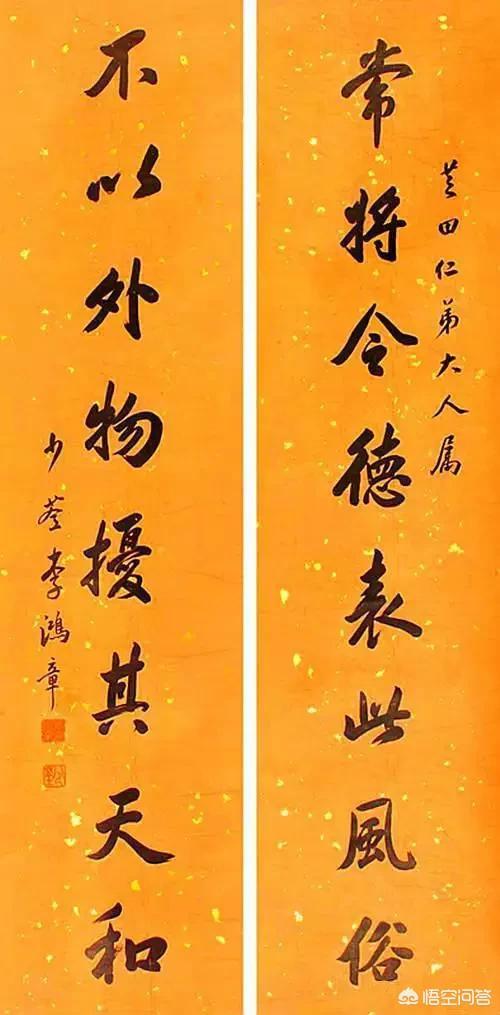 芝田仁弟大人属
常将令德表此風俗
不以外物擾其天和
少荃李鴻章
悟空问答